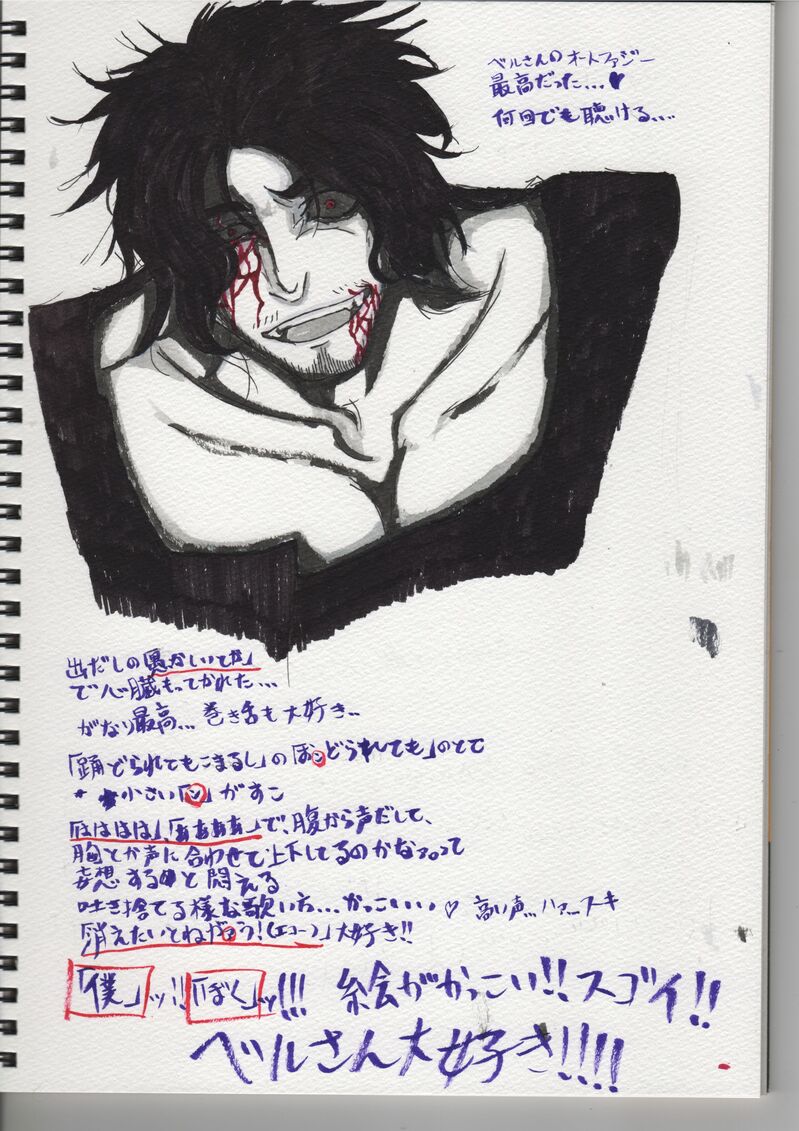 ベルさんのオートファジー
最高だった...♥
何回でも聴ける...
出だしの
で心臓もってかれた...
がなり最高... 巻き舌も大好き..
「踊どられてもこまるし」の「おンどられても」のとこ
小さい「ン」がすこ
「はははは」「ああああ」で、腹から声だして、
胸とか声に合わせて上下してるのかなって
妄想すると悶える
吐き捨てる様な歌い方...かっこいい♡ 高い声...ハァ...スキ
「消えたいとねがう!(エコー)」大好き!!
「僕」ッ!!「ぼく」ッ!!! 絵がかっこい!!スゴイ!!
ベルさん大好き!!!!